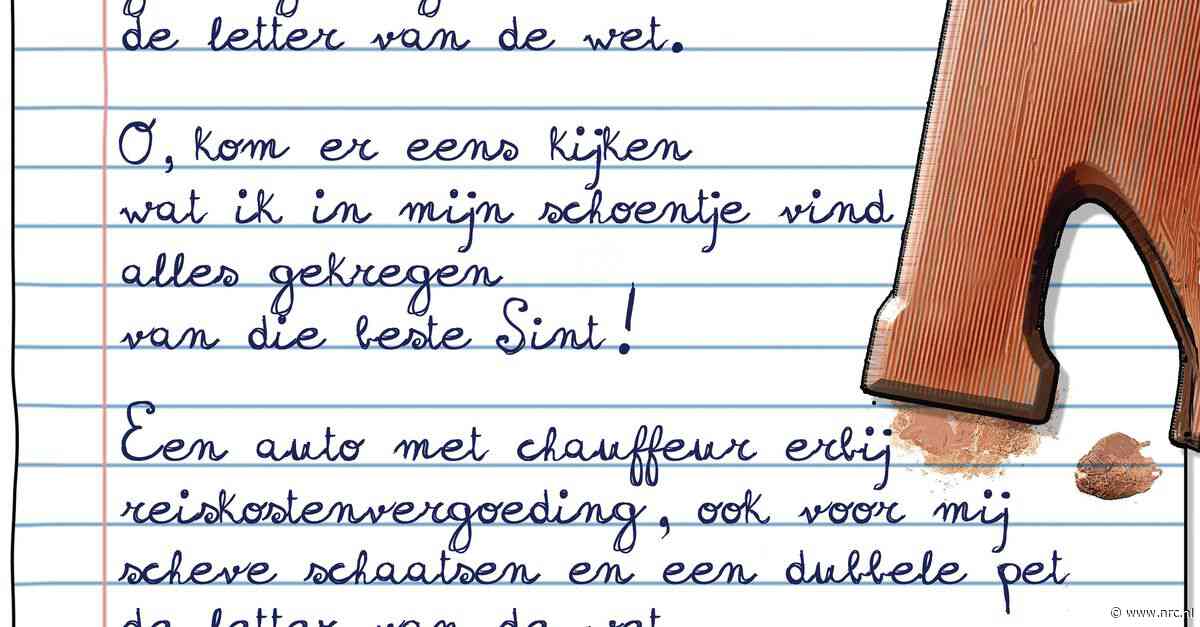 de letter van de wet.
O, kom er eens kijken
wat ik in mijn schoentje vind
alles gekregen
van die beste Sint!
Een auto met chauffeur erbij
reiskostenvergoeding, ook voor mij
scheve schaatsen en een dubbele pet
de letter van de wet
© www.nrc.nl